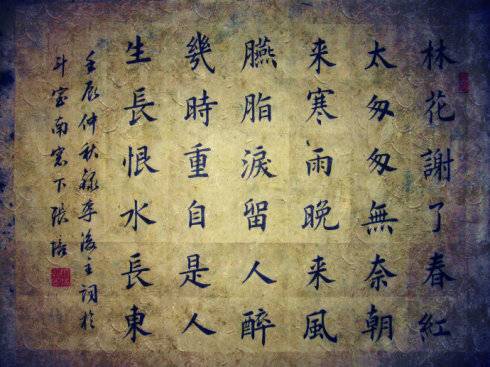 林花謝了春紅
太匆匆無奈朝
来寒雨晚来風
臙脂淚留人醉
幾時重自是人
生長恨水長東
壬辰仲秋録李後主詞於
斗室南窓下張培